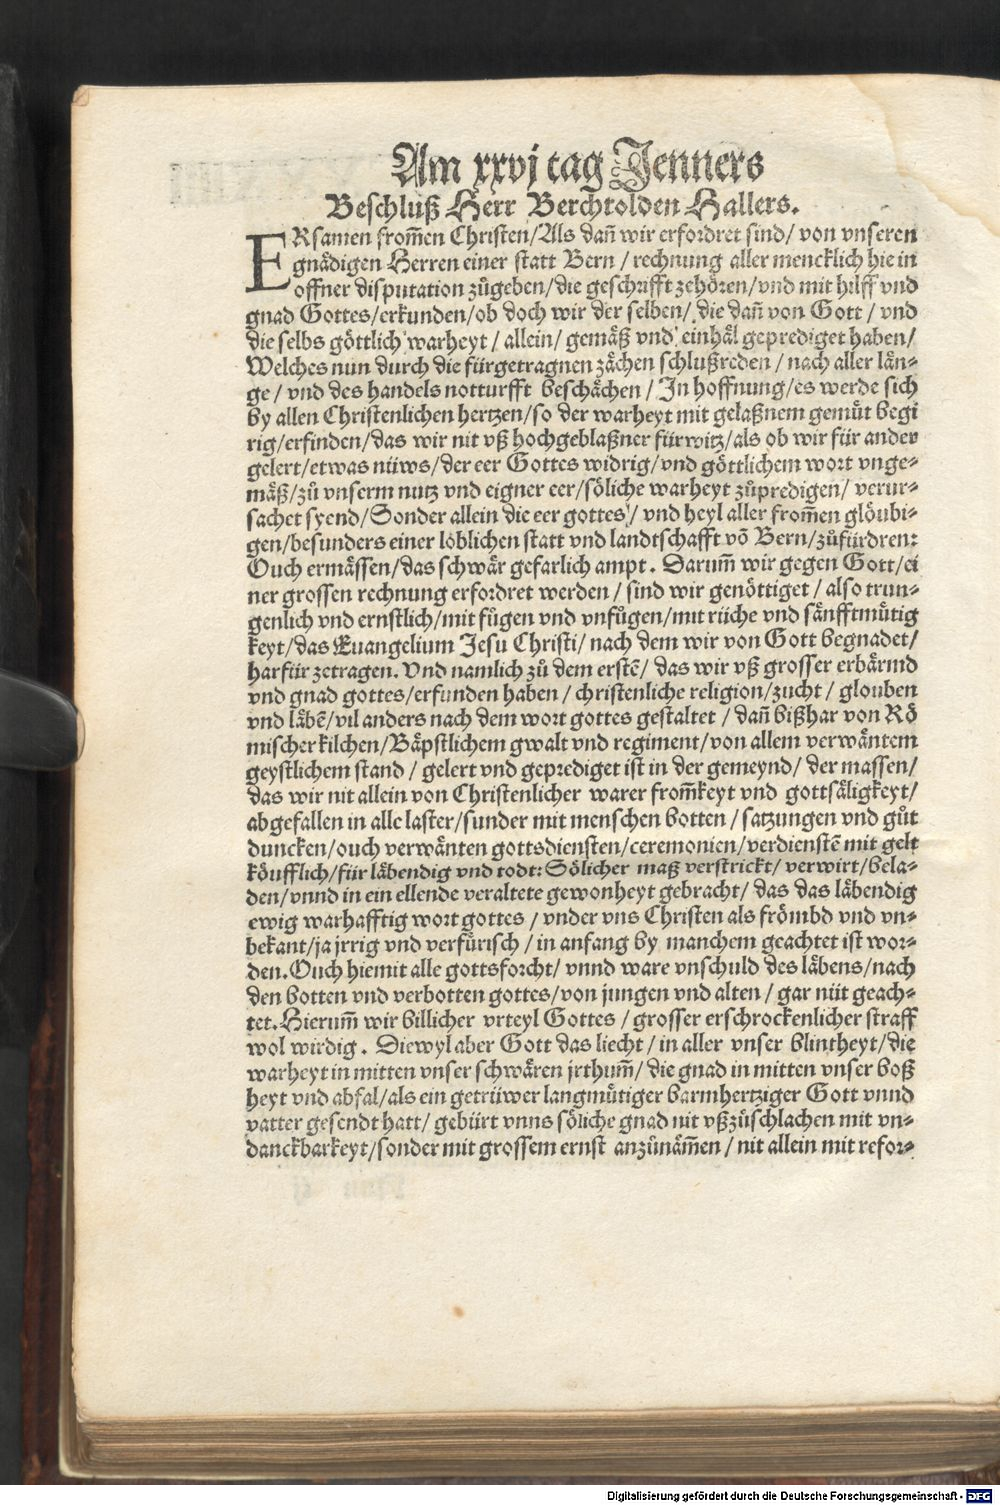 Am xxvj tag Jenners
Beschluß Herr Berchtolden Hallers.
ERsamen from̄en Christen/Als dan̄ wir erfordret sind/ von vnseren
gnädigen Herren einer statt Bern / rechnung aller mencklich hie in
offner disputation zůgeben/die geschrifft zehören/vnd mit hilff vnd
gnad Gottes/erkunden/ob doch wir der selben/ die dan̄ von Gott / vnd
die selbs göttlich warheyt / allein/ gemäß vnd einhäl geprediget haben/
Welches nun durch die fürgetragnen zächen schlußreden / nach aller län⸗
ge / vnd des handels notturfft beschächen / In hoffnung/es werde sich
by allen Christenlichen hertzen/so der warheyt mit gelaßnem gemüt begi
rig/erfinden/das wir nit vß hochgeblaßner fürwitz/als ob wir für ander
gelert/etwas nüws/der eer Gottes widrig/vnd göttlichem wort vnge⸗
mäß/zů vnserm nutz vnd eigner eer/söliche warheyt zůpredigen/ verur⸗
sachet syend/Sonder allein die eer gottes/ vnd heyl aller from̄en glöubi⸗
gen/besunders einer loblichen statt vnd landtschafft vō Bern/zůfürdren:
Ouch ermässen/das schwär gefarlich ampt. Darum̄ wir gegen Gott/ei
ner grossen rechnung erfordret werden/ sind wir genöttiget / also trun⸗
genlich vnd ernstlich/mit fůgen vnd vnfůgen/mit rüche vnd sänfftmütig
keyt/das Euangelium Jesu Christi/ nach dem wir von Gott begnadet/
harfür zetragen. Vnd namlich zů dem erstē/ das wir vß grosser erbärmd
vnd gnad gottes/erfunden haben / christenliche religion/zucht / glouben
vnd läbē/vil anders nach dem wort gottes gestaltet / dan̄ bißhar von Rö
mischer kilchen/Bäpstlichem gwalt vnd regiment/von allem verwäntem
geystlichem stand / gelert vnd geprediget ist in der gemeynd/ der massen/
das wir nit allein von Christenlicher warer from̄keyt vnd gottsäligkeyt/
abgefallen in alle laster/sunder mit menschen botten / satzungen vnd gůt
duncken/ouch verwänten gottsdiensten/ceremonien/verdienstē mit gelt
köufflich/für läbendig vnd todt: Sölicher maß verstrickt/ verwirt/bela⸗
den/vnnd in ein ellende veraltete gewonheyt gebracht/ das das läbendig
ewig warhafftig wort gottes / vnder vns Christen als frömbd vnd vn⸗
bekant/ja jrrig vnd verfürisch / in anfang by manchem geachtet ist wor⸗
den. Ouch hiemit alle gottsforcht/ vnnd ware vnschuld des läbens/nach
den botten vnd verbotten gottes/von jungen vnd alten / gar nüt geach⸗
tet. Hierum̄ wir billicher vrteyl Gottes / grosser erschrockenlicher straff
wol wirdig. Diewyl aber Gott das liecht / in aller vnser blintheyt/die
warheyt in mitten vnser schwären jrthum̄/ die gnad in mitten vnser boß
heyt vnd abfal/als ein getrüwer langmütiger barmhertziger Gott vnnd
vatter gesendt hatt/ gebürt vnns söliche gnad nit vßzůschlachen mit vn⸗
danckbarkeyt/sonder mit grossem ernst anzůnäm̄en / nit allein mit refor⸗
Digitalisierung gefördert durch die Deutsche Forschungsgemeinschaft - DFG